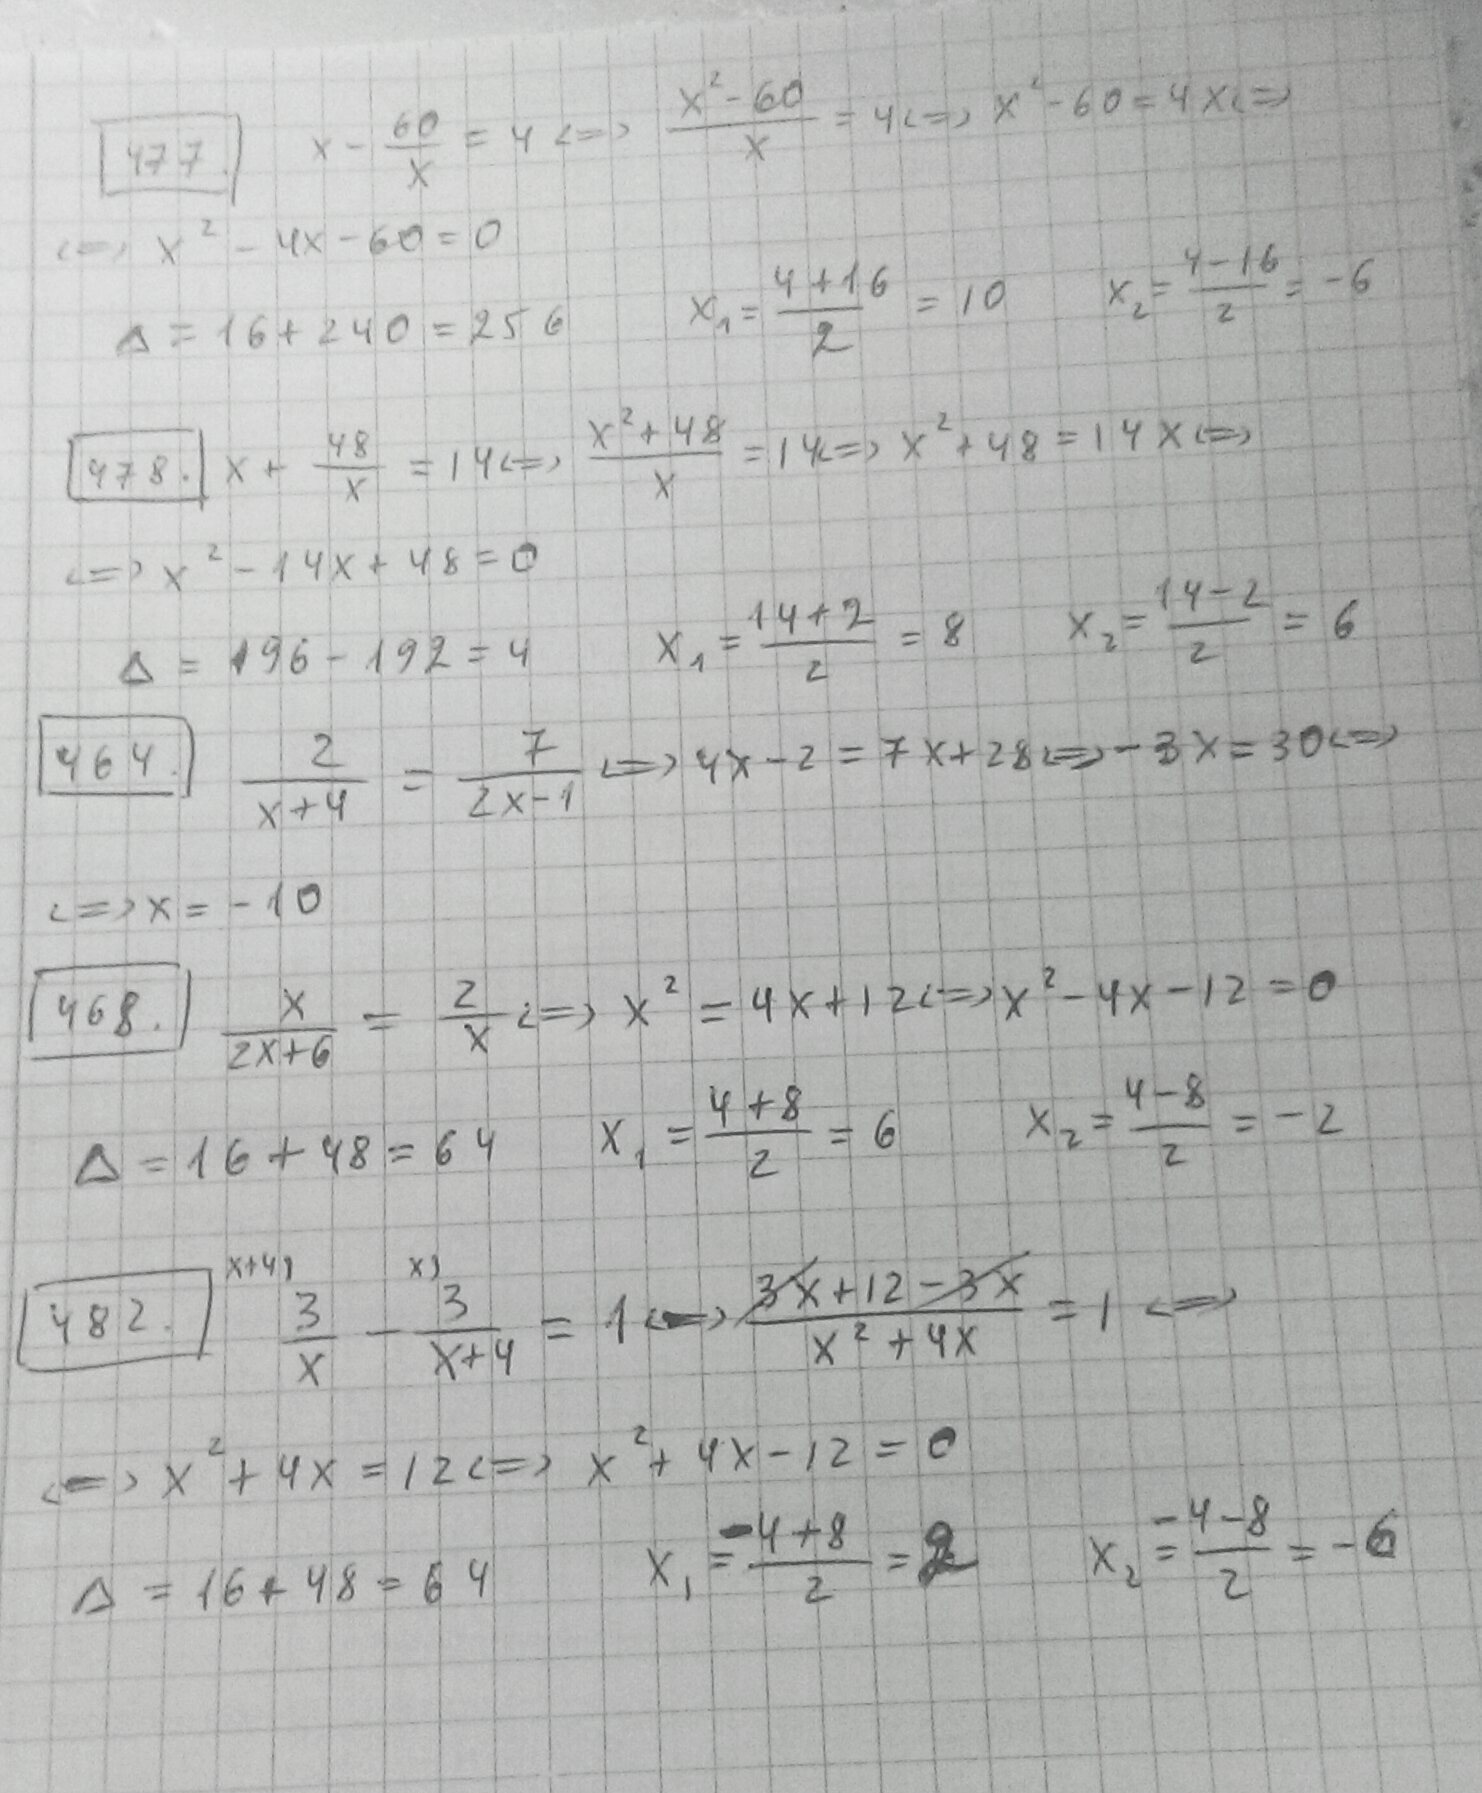 477. x - 60/x = 4 <=> (x² - 60)/x = 4 <=> x² - 60 = 4x <=>
<=> x² - 4x - 60 = 0
Δ = 16 + 240 = 256 x₁ = (4 + 16)/2 = 10 x₂ = (4 - 16)/2 = -6
478. x + 48/x = 14 <=> (x² + 48)/x = 14 <=> x² + 48 = 14x <=>
<=> x² - 14x + 48 = 0
Δ = 196 - 192 = 4 x₁ = (14 + 2)/2 = 8 x₂ = (14 - 2)/2 = 6
464. 2/(x+4) = 7/(2x-1) <=> 4x - 2 = 7x + 28 <=> -3x = 30 <=>
<=> x = -10
468. x/(2x+6) = 2/x <=> x² = 4x + 12 <=> x² - 4x - 12 = 0
Δ = 16 + 48 = 64 x₁ = (4 + 8)/2 = 6 x₂ = (4 - 8)/2 = -2
482. x+4) 3/x - x) 3/(x+4) = 1 <=> (3x + 12 - 3x)/(x² + 4x) = 1 <=>
<=> x² + 4x = 12 <=> x² + 4x - 12 = 0
Δ = 16 + 48 = 64 x₁ = (-4 + 8)/2 = 2 x₂ = (-4 - 8)/2 = -6